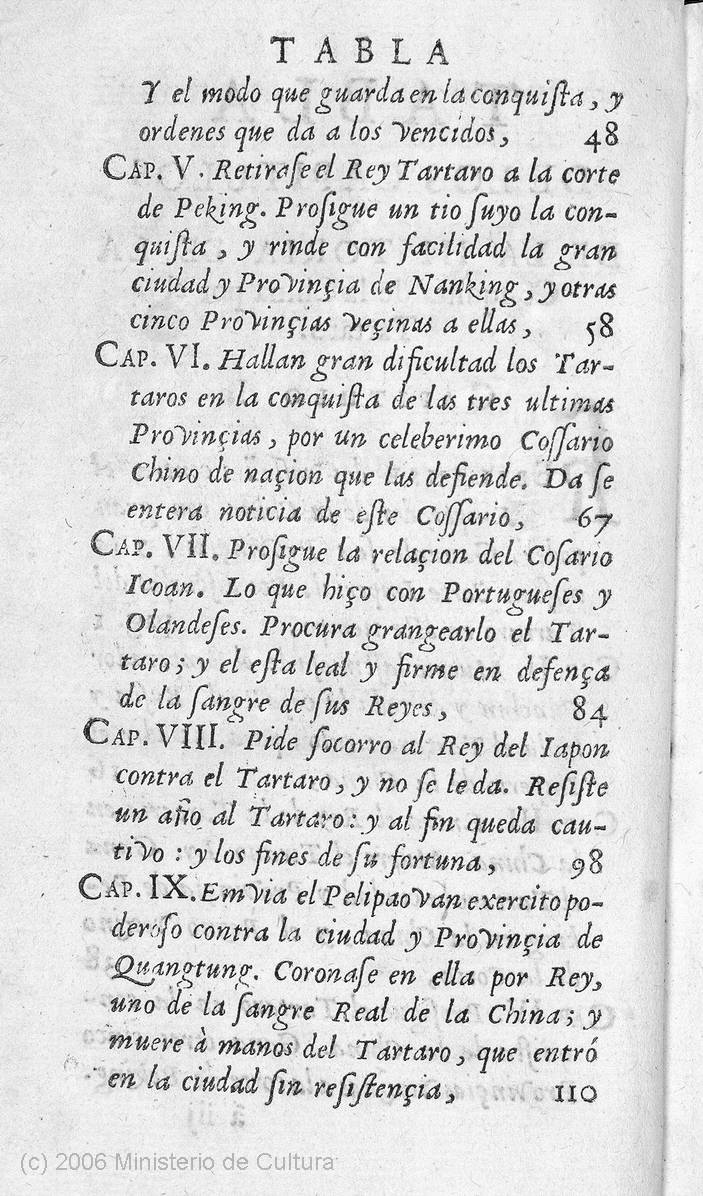 TABLA
Y el modo que guarda en la conquiſta, y
ordenes que da a los vencidos, 48
CAP. V. Retiraſe el Rey Tartaro a la corte
de Peking. Proſigue un tio ſuyo la con-
quiſta, y rinde con facilidad la gran
ciudad y Provinçia de Nanking, y otras
cinco Provinçias veçinas a ellas, 58
CAP. VI. Hallan gran dificultad los Tar-
taros en la conquiſta de las tres ultimas
Provinçias, por un celeberimo Coſſario
Chino de naçion que las defiende. Da ſe
entera noticia de eſte Coſſario, 67
CAP. VII. Proſigue la relaçion del Coſario
Icoan. Lo que hiço con Portugueſes y
Olandeſes. Procura grangearlo el Tar-
taro; y el eſta leal y firme en defença
de la ſangre de ſus Reyes, 84
CAP. VIII. Pide ſocorro al Rey del Iapon
contra el Tartaro, y no ſe le da. Reſiſte
un año al Tartaro: y al fin queda cau-
tivo: y los fines de ſu fortuna, 98
CAP. IX. Emvia el Pelipaovan exercito po-
deroſo contra la ciudad y Provinçia de
Quangtung. Coronaſe en ella por Rey,
uno de la ſangre Real de la China; y
muere à manos del Tartaro, que entró
en la ciudad ſin reſiſtençia, 110
(c) 2006 Ministerio de Cultura